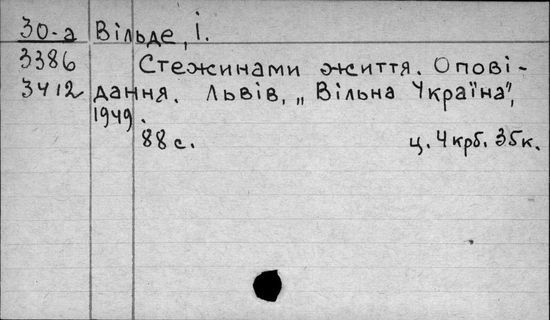 30-а Вільде, І.
3386 Стежинами життя. Опові-
3412 дання. Львів, „Вільна Україна",
1949.
88 с. ц. 4 крб. 35 к.